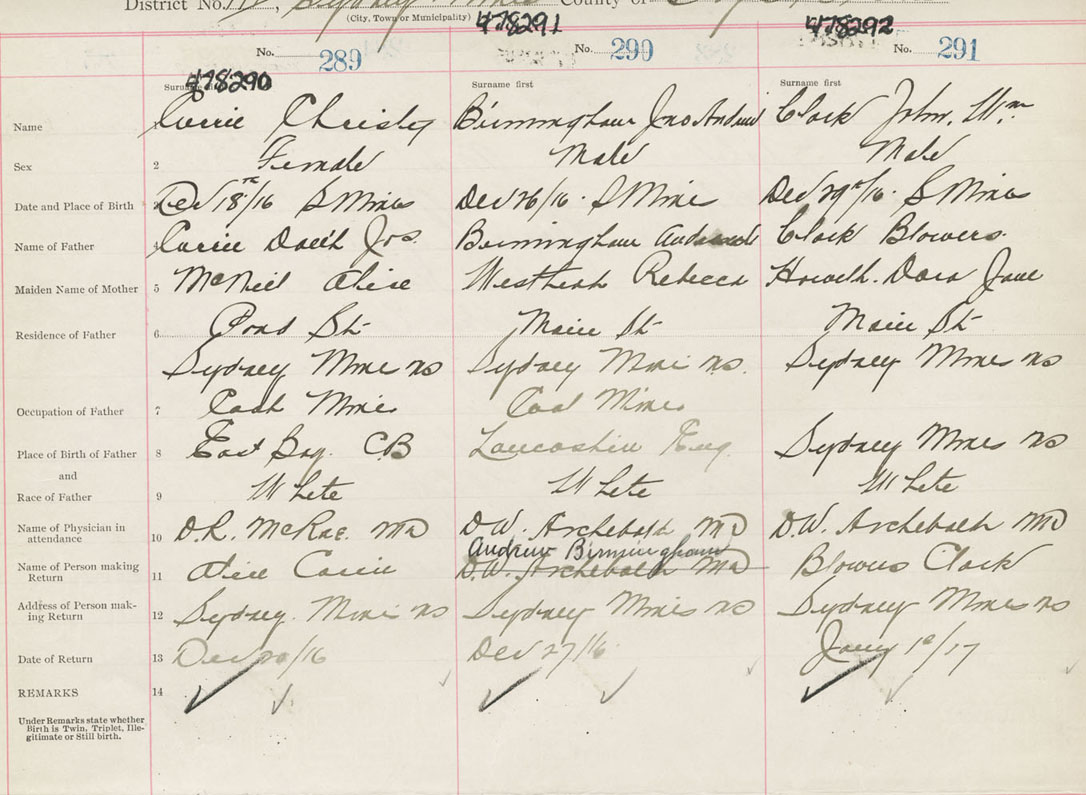 District No. Sydney Mines County of
(City, Town or Municipality)
478291 478292
No. 289 No. 290 No. 291
478290
Surname first Surname first Surname first
Name 1 Currie Christy Birmingham Jno Andrew Clark John. Wm
Sex 2 Female Male Male
Date and Place of Birth 3 Dec 18th/16 S Mines Dec 26/16. S Mines Dec 29th/16. S Mines
Name of Father 4 Currie Jos. Birmingham Clark Blowers.
Maiden Name of Mother 5 McNeil Alice Rebecca Howell. Dora Jane
Residence of Father 6 Pond St Main St Main St
Sydney Mines NS Sydney Mines NS. Sydney Mines NS
Occupation of Father 7 Coal Miner Coal Miner
Place of Birth of Father 8 East Bay. CB Lancashire Eng. Sydney Mines NS
and
Race of Father 9 White White White
Name of Physician in
attendance 10 D.R. McRae. MD D.W. Archibald MD D.W. Archibald MD
Andrew Birmingham
Name of Person making
Return 11 Alice Currie D.W. Archibald MD Blowers Clark
Address of Person mak-
ing Return 12 Sydney Mines NS Sydney Mines NS Sydney Mines NS
Date of Return 13 Dec 20/16 Dec 27/16. Jany 1st/17
REMARKS 14
Under Remarks state whether
Birth is Twin, Triplet, Ille-
gitimate or Still birth.